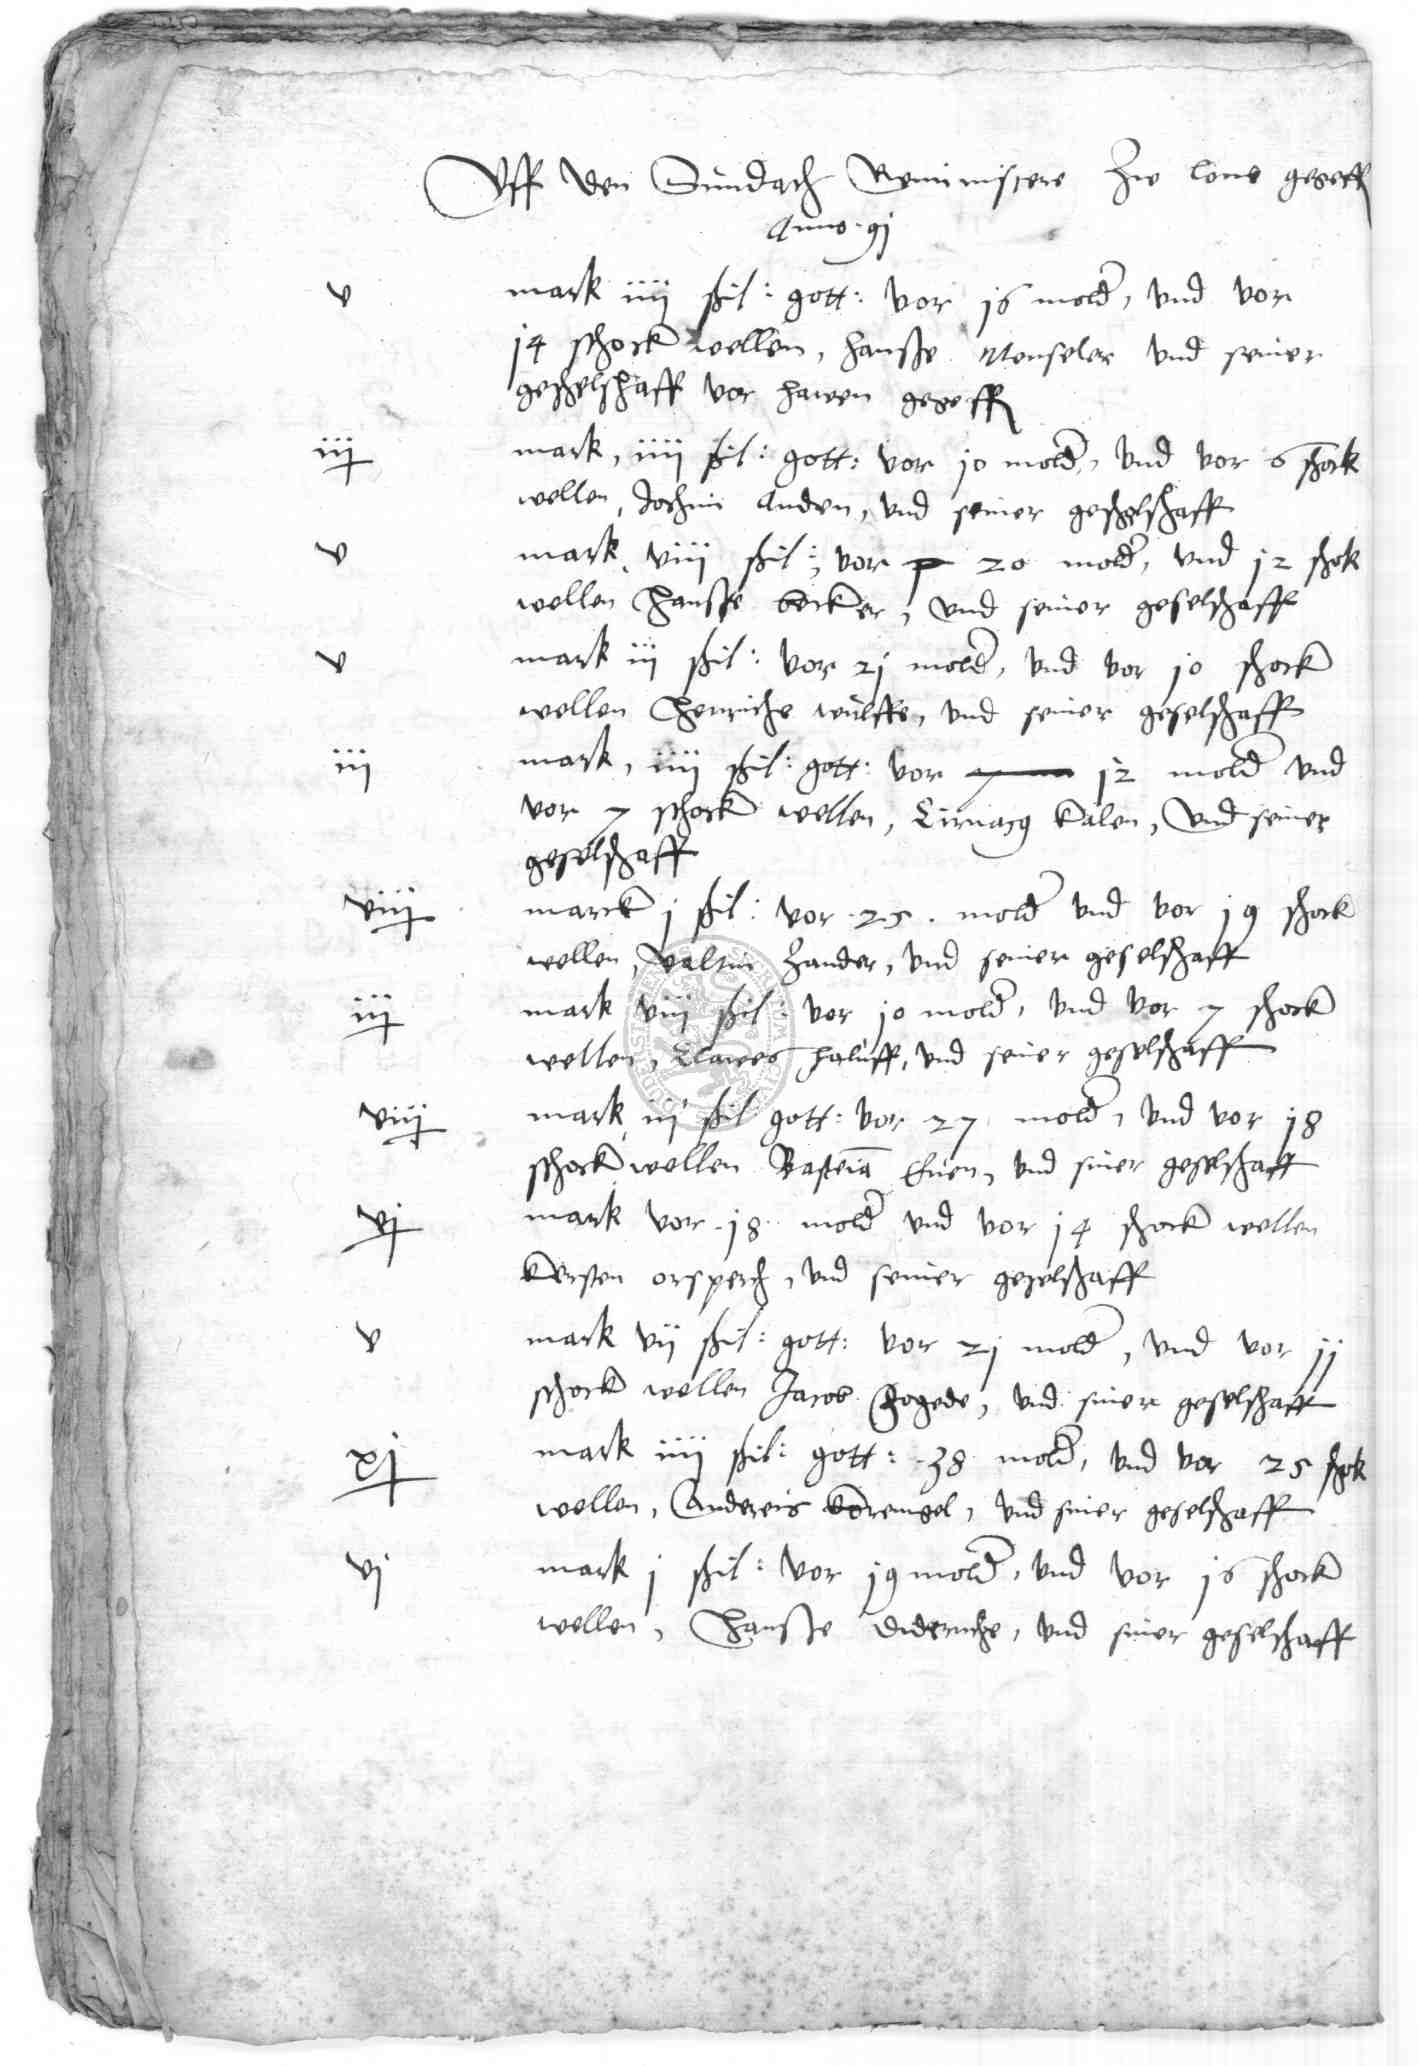 Vff den Sundach Reminiscere Zw lone gegeff
Anno · 9j
v mark iiij ßil: gott: vor j6 mold, vnd vor
j4 schock wellen, hansße Menseler vnd seiner
geselschaff vor hawen gegeff
iij mark, iiij ßil: gott: vor jo mold, vnd vor 6 schock
wellen, Jochim Anden, vnd seiner geselschaff
v mark, viij ßil:, vor 20 mold, vnd j2 schok
wellen Hansße becker, vnd seiner geselschaff
v mark iij ßil: vor 2j mold, vnd vor jo schock
wellen Henriche wulffe, vnd seiner geselschaff
iij mark, iiij ßil: gott: vor j2 mold vnd
vor 7 schock wellen, kalen, vnd seiner
geselschaff
viij marck j ßil: vor 25 . mold vnd vor j9 schock
wellen, valtin Zander, vnd seiner geselschaff
iij mark viij ßil: vor jo mold, vnd vor 7 schock
wellen, Clawes haluff, vnd seiner geselschaff
viij mark iij ßil gott: vor 27 mold, vnd vor j8
schock wellen Basteia, vnd siner geselschaff
vj mark vor j8 mold vnd vor j4 schock wellen
kersten orsperch, vnd seiner geselschaff
v mark vij ßil: gott: vor 2j mold, vnd vor jj
schock wellen Jacob Hogede, vnd siner geselschaff
xj mark iiij ßil: gott: 38 mold, vnd vor 25 schok
wellen, Andereis, vnd siner geselschaff
vj mark j ßil: vor j9 mold, vnd vor j6 schock
wellen, Hansße dideriche, vnd siner geselschaff